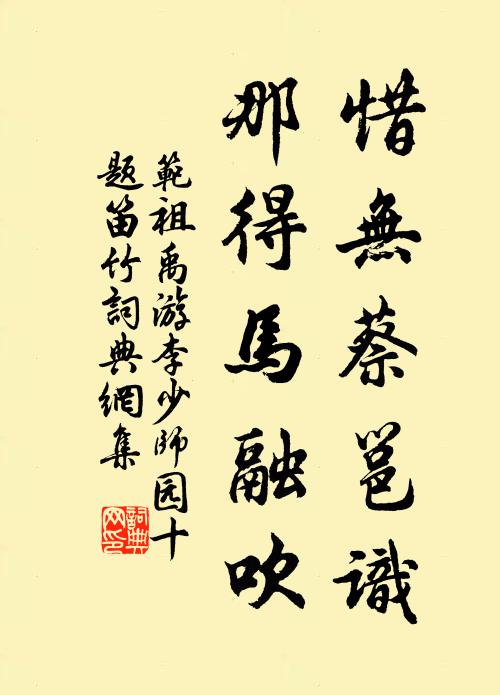 惜無蔡邕識
那得馬融吹
範祖禹游李少師园十
题笛竹詞典網集
詞典网印